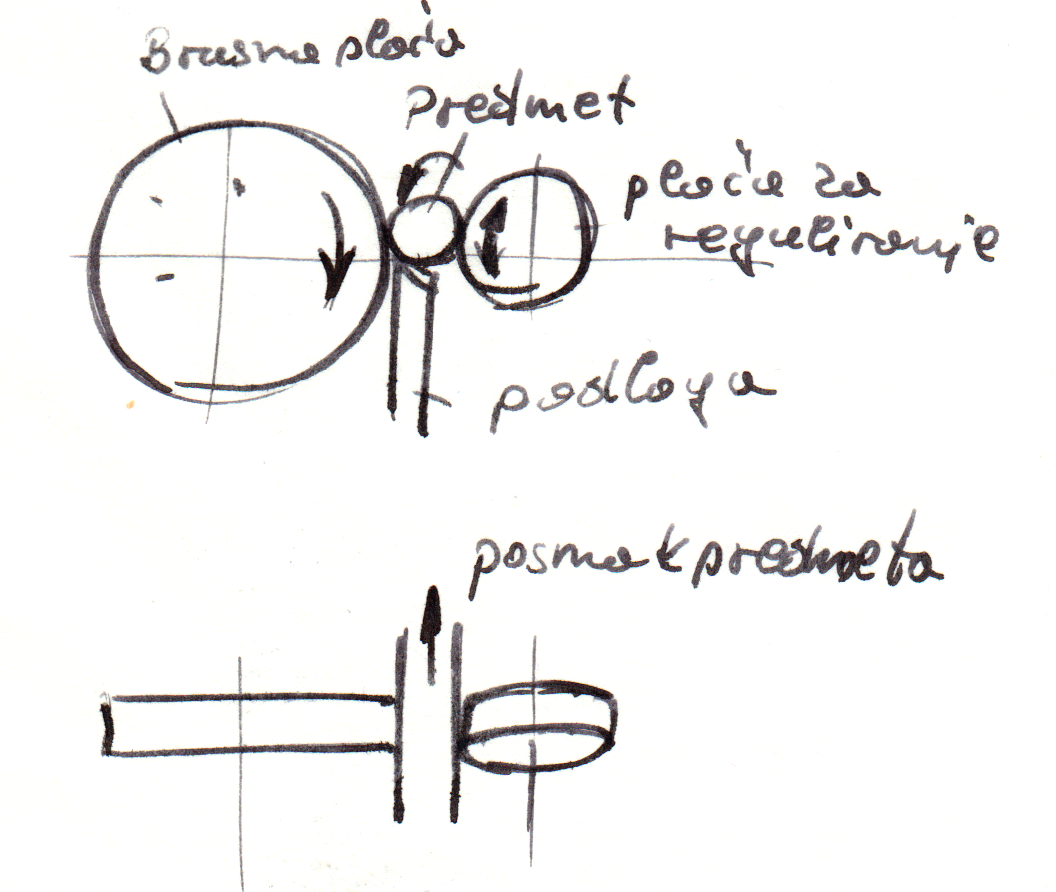 Brusna ploča
Predmet
ploča za
reguliranje
podloga
posmak predmeta